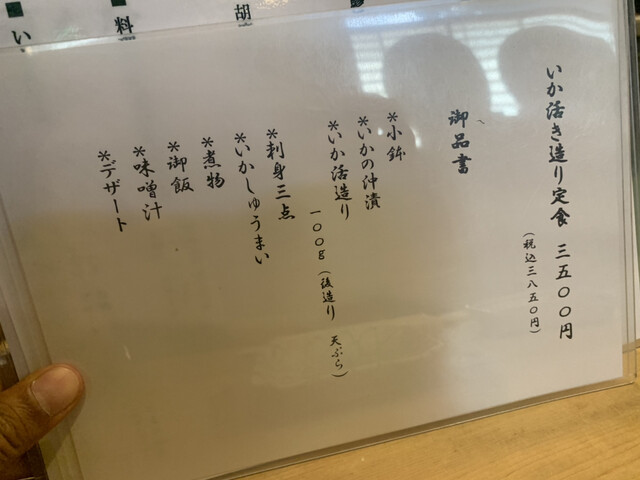 いか活き造り定食 三五〇〇円
(税込三八五〇円)
御品書
*小鉢
*いかの沖漬
*いか活造り
一〇〇g (後造り 天ぷら)
*刺身三点
*いかしゅうまい
*煮物
*御飯
*味噌汁
*デザート
胡
■料
■い